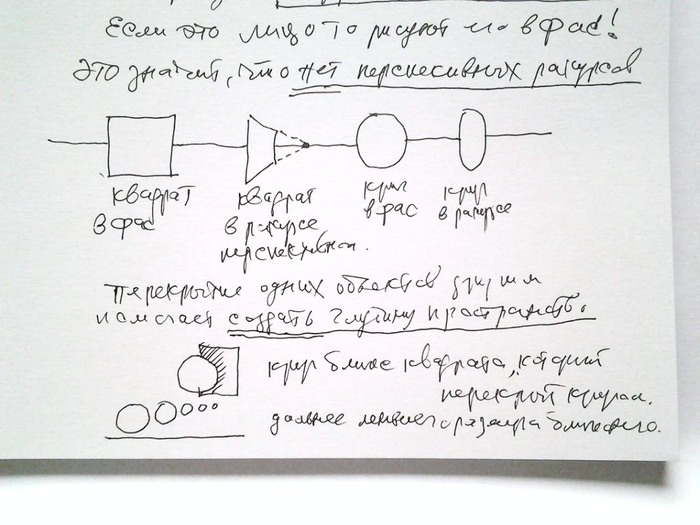 Если это лицо то рисуют его в фас!
Это значит, что нет перспективных ракурсов
квадрат
в фас
квадрат
в ракурсе
перспективном.
круг
в фас
круг
в ракурсе
перекрытие одних объектов другим
помогает создать глубину пространств.
круг ближе квадрата, который
перекрыт кругом.
дальнее меньшего размера ближнего.